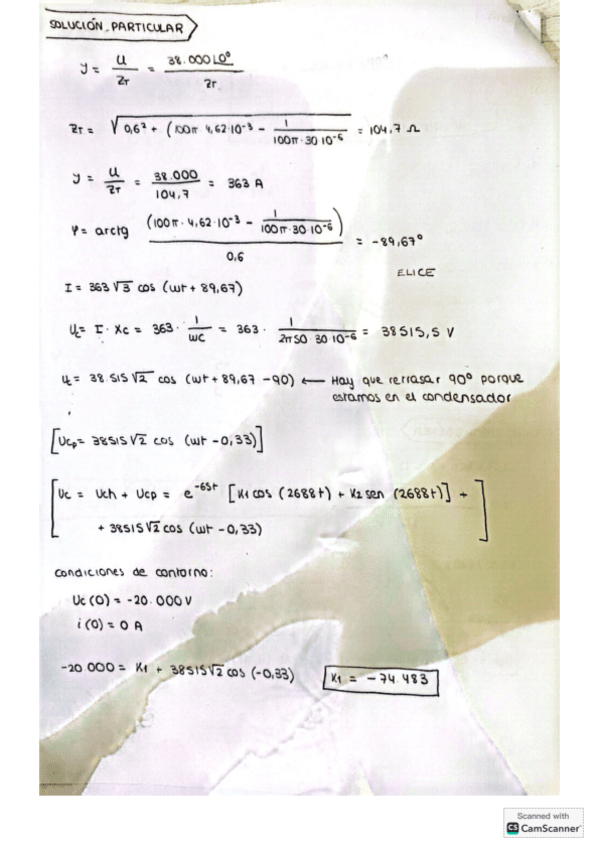 SOLUCIÓN PARTICULAR
y = U/Zr = 38.000∟0°/Zr
Zr = √(0,6² + (100π 4,62·10⁻³ − 1/(100π·30 10⁻⁶) = 104,7 Ω
y = U/Zr = 38.000/104,7 = 363 A
φ = arctg (100π·4,62·10⁻³ − 1/(100π·30·10⁻⁶))/0,6 = −89,67°
ELICE
I = 363√3 cos (ωt + 89,67)
Uc = I·Xc = 363· 1/ωC = 363· 1/(2π50·30·10⁻⁶) = 38515,5 V
Uc = 38.515√2 cos (ωt + 89,67 − 90) ← Hay que retrasar 90° porque
estamos en el condensador
[Ucp = 38515√2 cos (ωt − 0,33)]
[Uc = Uch + Ucp = e^(-65t) [K1 cos (2688t) + K2 sen (2688t)] +
+ 38515√2 cos (ωt − 0,33)]
condiciones de contorno:
Uc(0) = −20.000 V
i(0) = 0 A
−20.000 = K1 + 38515√2 cos (−0,33) K1 = −74.483
Scanned with
CS CamScanner